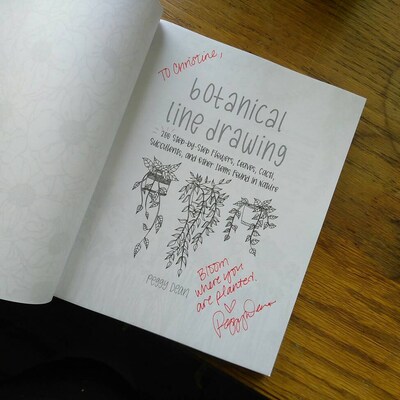 TO Christine,
botanical
line drawing
200 Step-by-Step Flowers, Leaves, Cacti,
Succulents, and Other Items Found in Nature
Peggy Dean
Bloom
where you
are planted.
Peggy Dean